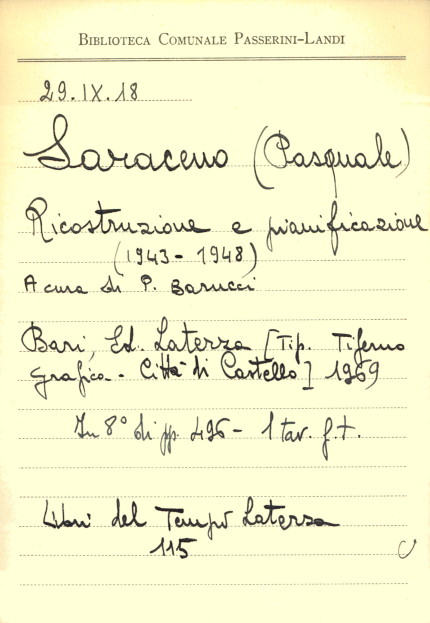 BIBLIOTECA COMUNALE PASSERINI-LANDI
29.IX.18
Saraceno (Pasquale)
Ricostruzione e pianificazione
(1943-1948)
A cura di P. Barucci
Bari, Ed. Laterza [Tip. Tiferno
grafica - Città di Castello] 1969
In 8° di pp. 496 - 1 tav. f.t.
Libri del Tempo Laterza
115